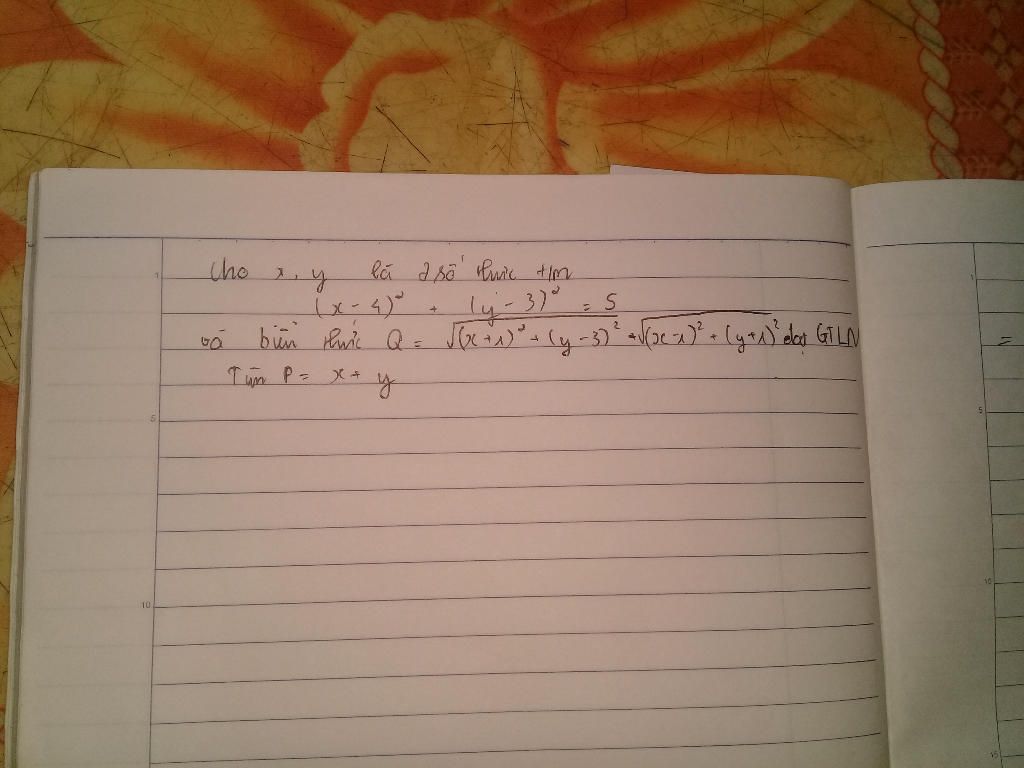 Cho x, y là 2 số thực t/m
(x - 4)² + (y - 3)² = 5
và biểu thức Q = √(x+1)² + (y-3)² + √(x-1)² + (y+1)² đạt GTLN
Tìm P = x + y
=
1
5
10
1
5
10
15